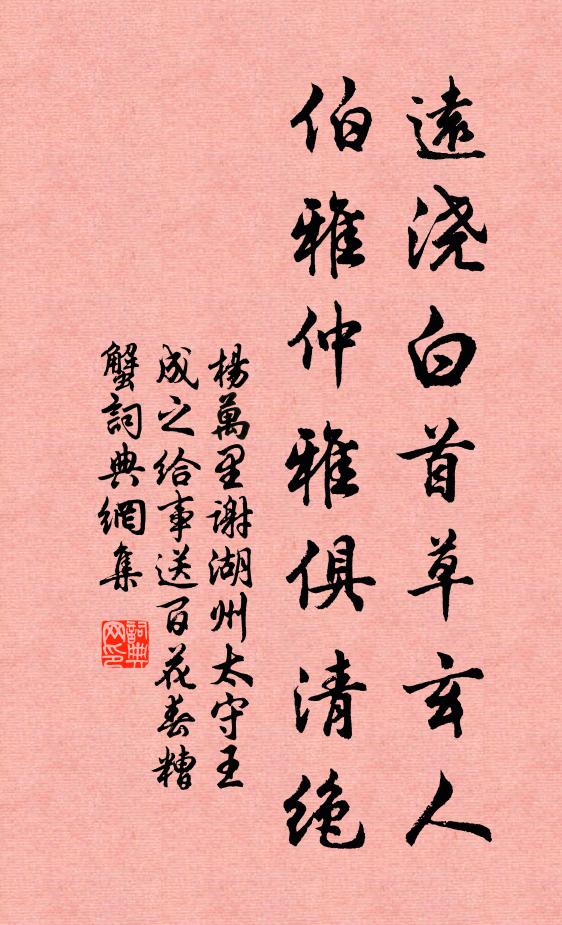 遠浇白首草玄人
伯雅仲雅俱清绝
楊萬里谢湖州太守王
成之给事送百花春糟
蟹詞典網集
詞典
网印